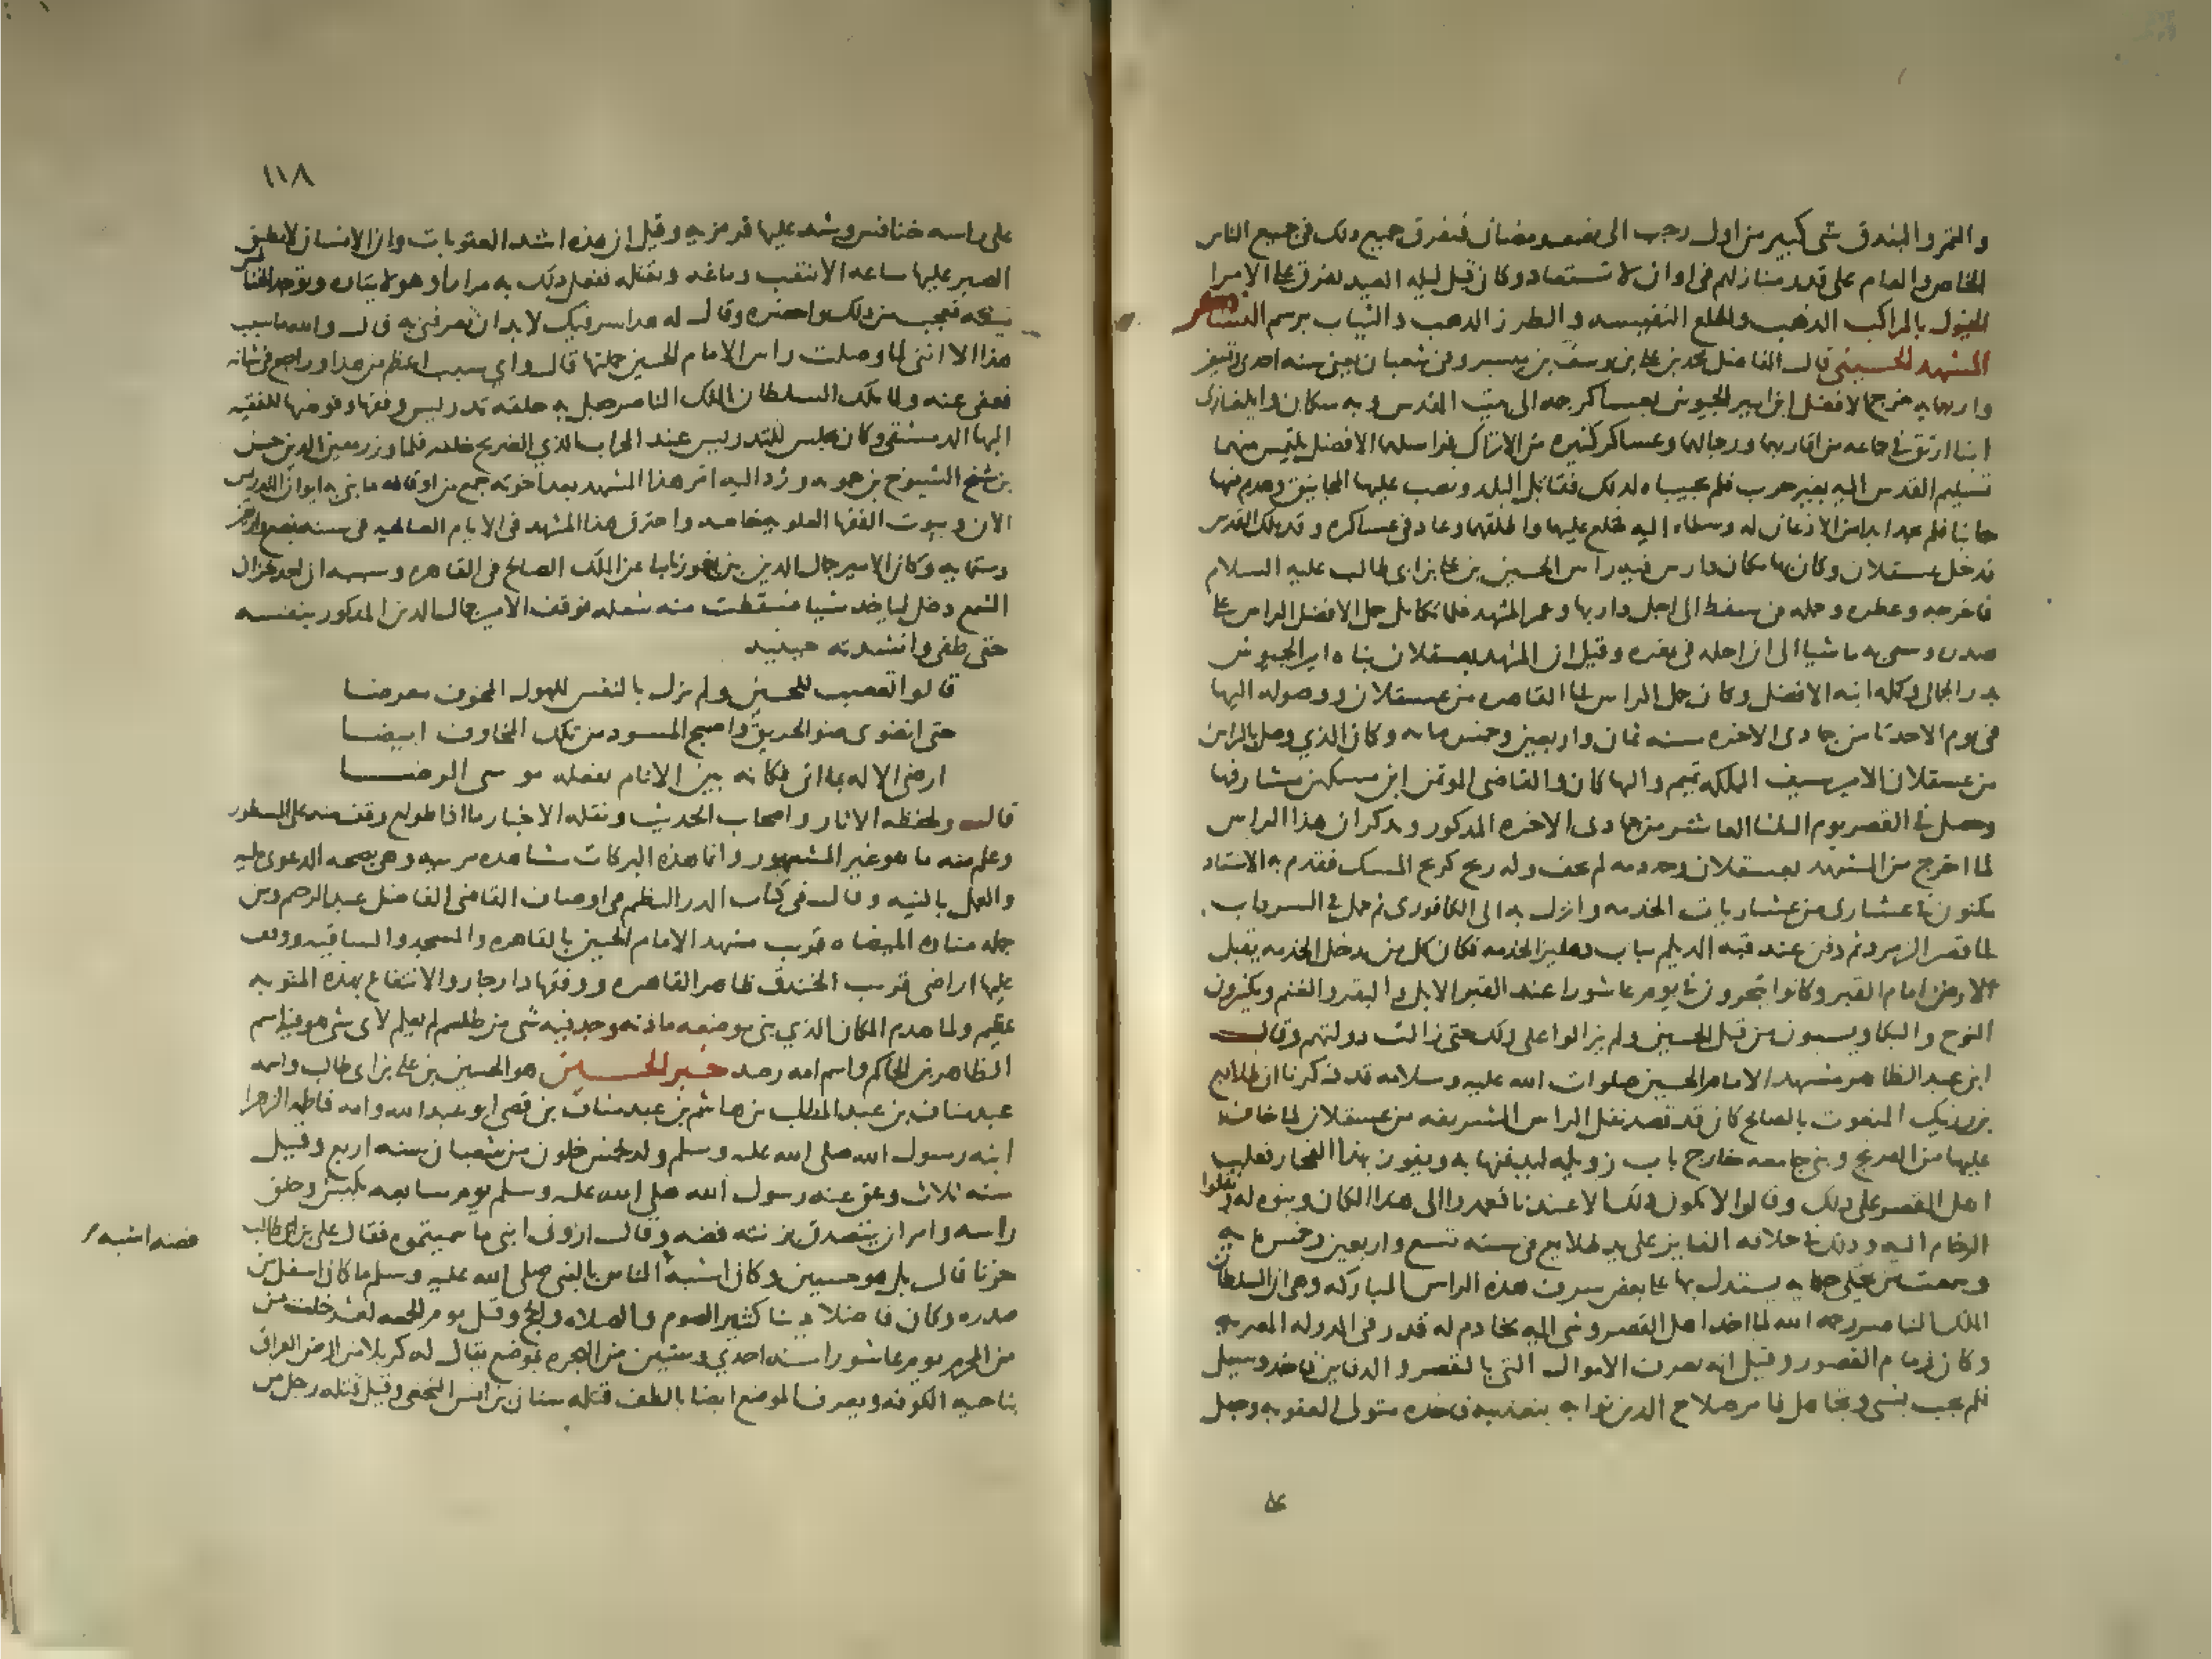 والتمر والبندق شى كبير من اول رجب الى نصف رمضان فيفرق جميع ذلك فى جميع الناس
الخاص والعام على قدر منازلهم فى اوانى لا تستعاد وكان قبل ليله العيد يفرق على الامرا
الخيول بالمراكب الذهب والخلع النفيسه والطرز الذهب والثياب برسم النسا ذكر
المشهد الحسينى قال الفاضل محمد بن على بن يوسف بن ميسر وفى شعبان يعنى سنه احدى وتسعين
واربعمايه خرج الافضل ابن امير الجيوش بعساكر جمه الى بيت المقدس وبه سكمان وايلغازى
ابنا ارتق فى جماعه من اقاربهما ورجالهما وعساكر كثيره من الاتراك فراسلهما الافضل يلتمس منهما
تسليم القدس اليه بغير حرب فلم يجيباه لذلك فقاتل البلد ونصب عليها المجانيق وهدم منها
جانبا فلم يجدا بدا من الاذعان له وسلماه اليه فخلع عليهما واطلقهما وعاد فى عساكره وقد ملك القدس
فدخل عسقلان وكان بها مكان دارس فيه راس الحسين بن على بن ابى طالب عليه السلام
فاخرجه وعطره وحمله فى سفط الى اجل دار بها وعمر المشهد فلما تكامل حمل الافضل الراس على
صدره وسعى به ماشيا الى ان احله فى مقره وقيل ان المشهد بعسقلان بناه امير الجيوش
بدر الجمالى وكمله ابنه الافضل وكان حمل الراس الى القاهره من عسقلان ووصوله اليها
فى يوم الاحد ثامن جمادى الاخره سنه ثمان واربعين وخمس مايه وكان الذي وصل بالراس
من عسقلان الامير سيف المملكه تميم واليها كان والقاضى الموتمن ابن مسكين مشارفها
وحصل فى القصر يوم الثلثا العاشر من جمادى الاخره المذكور ويذكر ان هذا الراس
لما اخرج من المشهد بعسقلان وجد دمه لم يجف وله ريح كريح المسك فقدم به الاستاذ
مكنون فى عشارى من عشاريات الخدمه وانزل به الى الكافورى ثم حمل فى السرداب
الى قصر الزمرد ثم دفن عند قبه الديلم بباب دهليز الخدمه فكان كل من يدخل الخدمه يقبل
الارض امام القبر وكانوا ينحرون فى يوم عاشورا عند القبر الابل والبقر والغنم ويكثرون
النوح والبكا ويسبون من قتل الحسين ولم يزالوا على ذلك حتى زالت دولتهم وقال
ابن عبد الظاهر مشهد الامام الحسين صلوات الله عليه وسلامه قد ذكرنا ان طلايع
بن رزيك المنعوت بالصالح كان قد قصد نقل الراس الشريفه من عسقلان لما خاف
عليها من الفرنج وبنى جامعه خارج باب زويله ليدفنها به ويفوز بهذا الفخار فغلبه
اهل القصر على ذلك وقالوا لا يكون ذلك الا عندنا فعمدوا الى هذا المكان وبنوه له ونقلوا
الرخام اليه وذلك فى خلافه الفايز على يد طلايع فى سنه تسع واربعين وخمس مايه
وسمعت من يحكى حكايه يستدل بها على بعض شرف هذه الراس المباركه وهى ان السلطان
الملك الناصر رحمه الله لما اخذ اهل القصر وشى اليه بخادم له قدر فى الدوله المصريه
وكان زمام القصور وقيل انه يعرف الاموال التى بالقصر والدفاين فاخذ وسيل
فلم يجب بشى وتجاهل فامر صلاح الدين نوابه بتعذيبه فاخذه متولى العقوبه وجعل
على
١١٨
على راسه خنافس وشد عليها قرمزيه وقيل ان هذه اشد العقوبات وان الانسان لا يطيق
الصبر عليها ساعه الا تنقب دماغه وتقتله ففعل ذلك به مرارا وهو لا يتاوه وتوجد الخنافس
ميته فعجب من ذلك واحضره وقال له هذا سر فيك لا بد ان تعرفنى به قال والله ما سبب
هذا الا انى لما وصلت راس الامام الحسين حملتها قال واي سبب اعظم من هذا وراجع فى شانه
فعفى عنه ولما ملك السلطان الملك الناصر جعل به حلقه تدريس وفقها وفوضها للفقيه
البها الدمشقى وكان يجلس للتدريس عند المحراب الذي الضريح خلفه فلما وزر معين الدين حسن
بن شيخ الشيوخ بن حمويه ورد اليه امر هذا المشهد بعد اخوته جمع من اوقافه ما بنى به ايوان التدريس
الان وبيوت الفقها العلويه خاصه واحترق هذا المشهد فى الايام الصالحيه فى سنه بضع واربعين
وستمايه وكان الامير جمال الدين بن يغمور نايبا عن الملك الصالح فى القاهره وسببه ان احد خزان
الشمع دخل لياخذ شيا فسقطت منه شعله فوقف الامير جمال الدين المذكور بنفسه
حتى طفى وانشدته حينيد
قالوا تعصب للحسين ولم يزل بالنفس للهول المخوف معرضا
حتى انضوى ضو الحريق واصبح المسود من تلك المخاوف ابيضا
ارضى الاله بما اتى فكانه بين الانام بفعله موسى الرضا
قال ولحفظه الاثار واصحاب الحديث ونقله الاخبار ما اذا طولع وقف منه على المسطور
وعلم منه ما هو غير المشهور وانما هذه البركات مشاهده مرييه وهى بصحه الدعوى مليه
والعمل بالنيه وقال فى كتاب الدر النظيم فى اوصاف القاضى الفاضل عبد الرحيم ومن
جمله مبانيه الميضاه قريب مشهد الامام الحسين بالقاهره والمسجد والساقيه ووقف
عليها اراضى قريب الخندق ظاهر القاهره ووقفها دار جار والانتفاع بهذه المثوبه
عظيم ولما هدم المكان الذي بنى موضعه ماذنه وجد فيه شى من طلسم لم يعلم لاى شى هو فيه اسم
الظاهر بن الحاكم واسم امه رصد خبر الحسين هو الحسين بن على بن ابى طالب واسمه
عبد مناف بن عبد المطلب بن هاشم بن عبد مناف بن قصى ابو عبد الله وامه فاطمه الزهرا
ابنه رسول الله صلى الله عليه وسلم ولد لخمس خلون من شعبان سنه اربع وقيل
سنه ثلاث وعق عنه رسول الله صلى الله عليه وسلم يوم سابعه بكبش وحلق
راسه وامر ان يتصدق بزنته فضه وقال ارونى ابنى ما سميتموه فقال على بن ابى طالب
حربا قال بل هو حسين وكان اشبه الناس بالنبى صلى الله عليه وسلم ما كان اسفل من
صدره وكان فاضلا دينا كثير الصوم والصلاه والحج وقتل يوم الجمعه لعشر خلت من
من المحرم يوم عاشورا سنه احدي وستين من الهجره بموضع يقال له كربلا من ارض العراق
بناحيه الكوفه ويعرف الموضع ايضا بالطف قتله سنان بن انس النخعى وقيل قتله رجل من